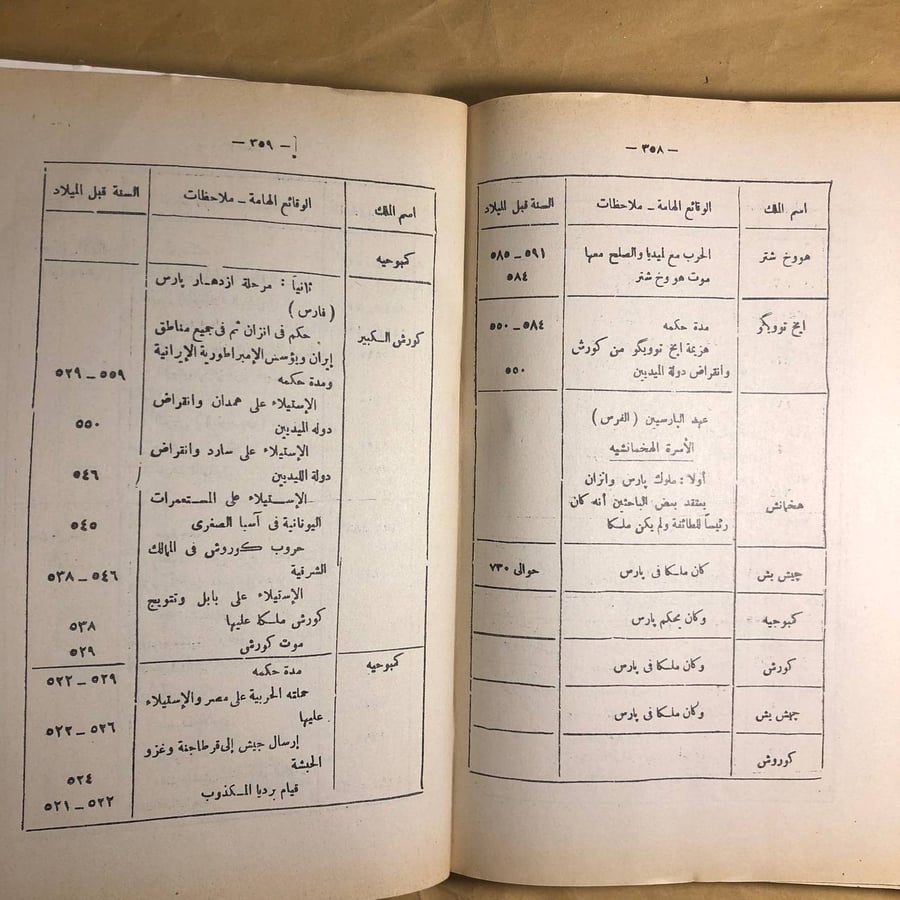 — ٣٥٨ —
اسم الملك | الوقائع الهامة ـ ملاحظات | السنة قبل الميلاد
هووخ شتر | الحرب مع ليديا والصلح معها | ٥٩١ ـ ٥٨٥
موت هووخ شتر | ٥٨٤
ايخ توويگو | مدة حكمه | ٥٨٤ ـ ٥٥٠
هزيمة ايخ توويگو من كورش
وانقراض دولة الميديين | ٥٥٠
عهد البارسيين ( الفرس )
الأسرة الهخمانشيه
أولا : ملوك پارس وانزان
هخمانش | يعتقد بعض الباحثين أنه كان
رئيساً للطائفة ولم يكن ملكا
چيش بش | كان ملكا فى پارس | حوالى ٧٣٠
كبوجيه | وكان يحكم پارس
كورش | وكان ملكا فى پارس
چيش بش | وكان ملكا فى پارس
كوروش
— ٣٥٩ —
اسم الملك | الوقائع الهامة ـ ملاحظات | السنة قبل الميلاد
كمبوجيه
ثانياً : مرحلة ازدهـار پارس
( فارس )
كورش الكبير | حكم فى انزان ثم فى جميع مناطق
إيران ويؤسس الإمبراطورية الإيرانية
ومدة حكمه | ٥٥٩ ـ ٥٢٩
الإستيلاء على همدان وانقراض
دولة الميديين | ٥٥٠
الإستيلاء على سارد وانقراض
دولة الليديين | ٥٤٦
الإستيلاء على المستعمرات
اليونانية فى آسيا الصغرى | ٥٤٥
حروب كوروش فى الممالك
الشرقية | ٥٤٦ ـ ٥٣٨
الإستيلاء على بابل وتتويج
كورش ملكا عليها | ٥٣٨
موت كورش | ٥٢٩
كمبوجيه | مدة حكمه | ٥٢٩ ـ ٥٢٢
حملته الحربية على مصر والإستيلاء
عليها | ٥٢٦ ـ ٥٢٢
إرسال جيش إلى قرطاجنة وغزو
الحبشة | ٥٢٤
قيام برديا المكذوب | ٥٢٢ ـ ٥٢١